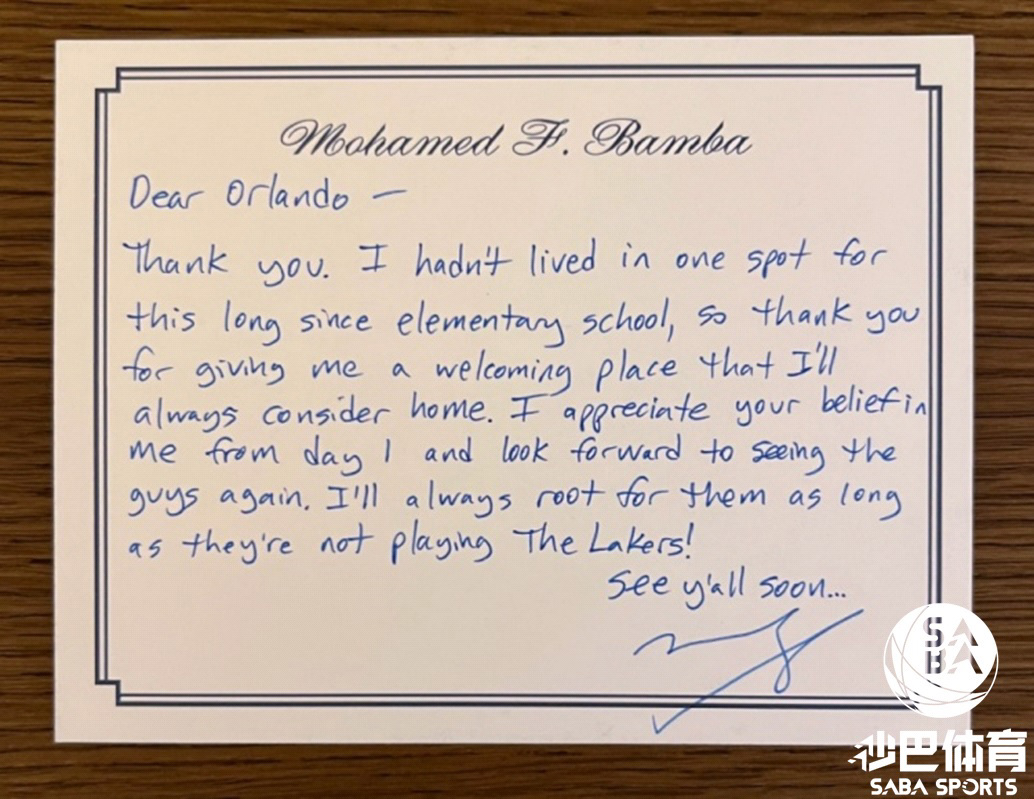 Mohamed F. Bamba
Dear Orlando —
Thank you. I hadn't lived in one spot for
this long since elementary school, so thank you
for giving me a welcoming place that I'll
always consider home. I appreciate your belief in
me from day 1 and look forward to seeing the
guys again. I'll always root for them as long
as they're not playing The Lakers!
See y'all soon...
SABA
沙巴体育
SABA SPORTS